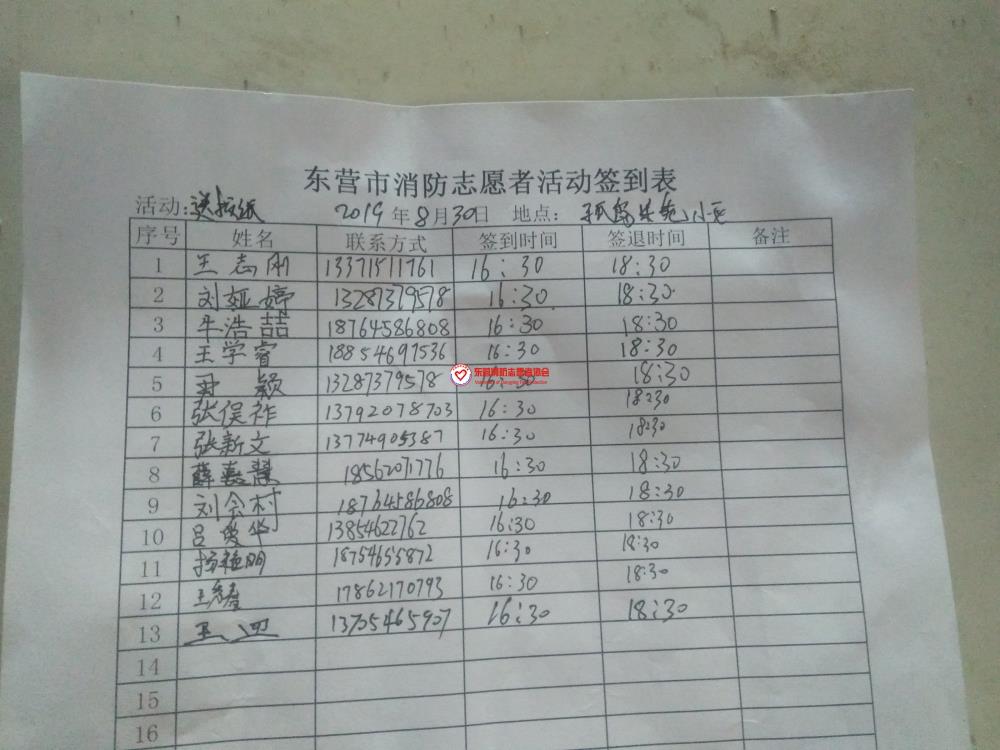 东营市消防志愿者活动签到表
活动: 2019年8月30日 地点: 孤岛 小区
序号 姓名 联系方式 签到时间 签退时间 备注
1 王志刚 13371511761 16:30 18:30
2 刘娅婷 13287379578 16:30 18:30
3 牛浩喆 18764586808 16:30 18:30
4 王学睿 18854697536 16:30 18:30
5 颖 13287379578 16:30 18:30
东营消防志愿者协会
6 张俣祚 13792078703 16:30 18:30
7 张新文 13774905387 16:30 18:30
8 薛嘉慧 18562071776 16:30 18:30
9 刘会村 18764586808 16:30 18:30
10 吕爱华 13854622762 16:30 18:30
11 杨艳明 18754655872 16:30 18:30
12 王 17862170793 16:30 18:30
13 王迎 13705465907 16:30 18:30
14
15
16